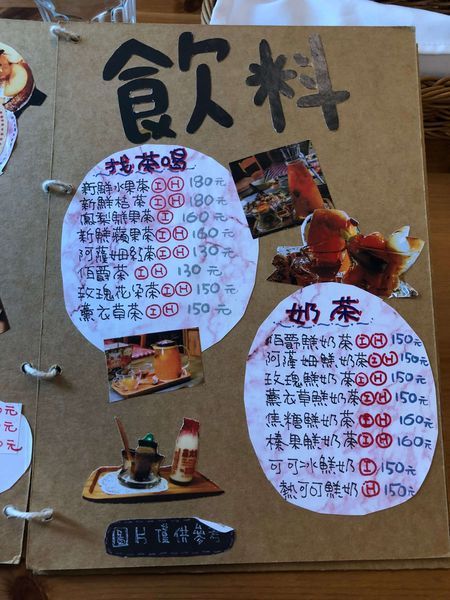 飲料
找茶喝
新鮮水果茶 I H 180元
新鮮桔茶 I H 180元
鳳梨鮮果茶 I 160元
新鮮蘋果茶 I H 160元
阿薩姆紅茶 I H 130元
伯爵茶 I H 130元
玫瑰花朵茶 I H 150元
薰衣草茶 I H 150元
奶茶
伯爵鮮奶茶 I H 150元
阿薩姆鮮奶茶 I H 150元
玫瑰鮮奶茶 I H 150元
薰衣草鮮奶茶 I H 150元
焦糖鮮奶茶 I H 160元
榛果鮮奶茶 I H 160元
可可冰鮮奶 I 150元
熱可可鮮奶 H 150元
圖片僅供參考
0元
0元
0元